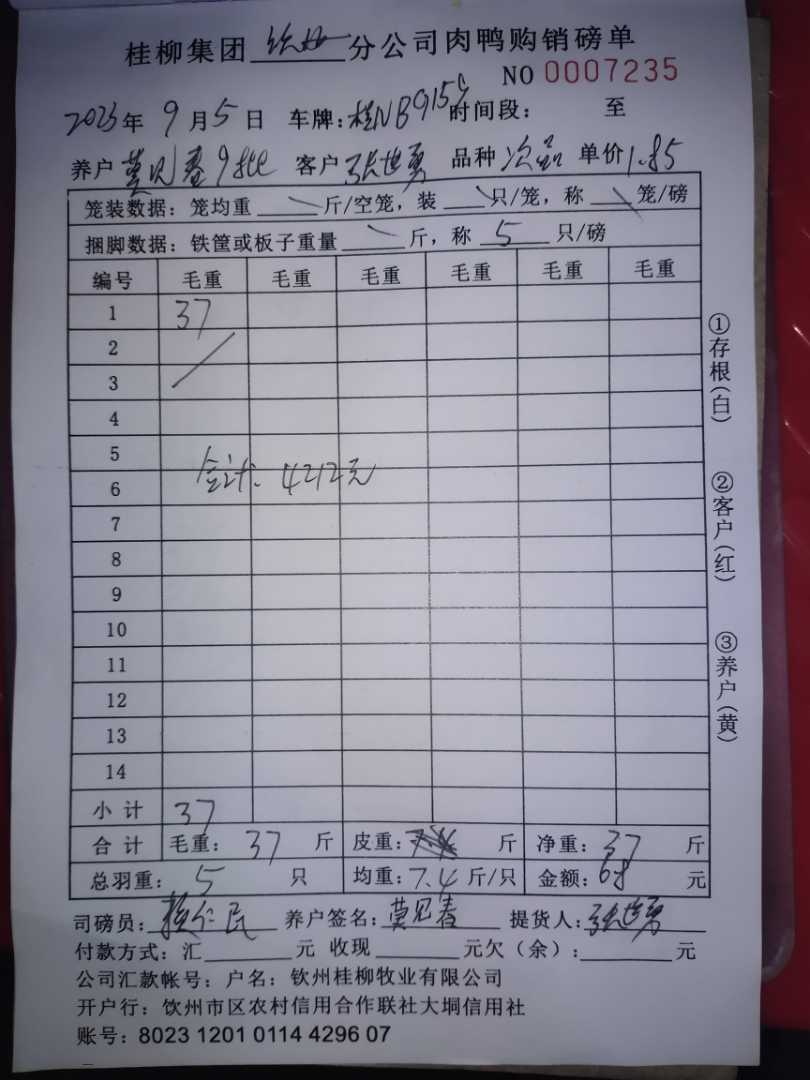 桂柳集团 钦州 分公司肉鸭购销磅单
NO 0007235
2023年 9月5日 车牌：桂NB9159 时间段： 至
养户 莫见春9批 客户 张世勇 品种 次品 单价1.85
笼装数据：笼均重 斤/空笼，装 只/笼，称 笼/磅
捆脚数据：铁筐或板子重量 斤，称 5 只/磅
编号 毛重 毛重 毛重 毛重 毛重 毛重
1 37
2
3
4
5
合计：4212元
6
7
8
9
10
11
12
13
14
小 计 37
合 计 毛重：37 斤 皮重： 斤 净重：37 斤
总羽重：5 只 均重：7.4 斤/只 金额：68 元
司磅员： 仁民 养户签名：莫见春 提货人：张世勇
付款方式：汇 元 收现 元欠（余）： 元
公司汇款帐号：户名：钦州桂柳牧业有限公司
开户行：饮州市区农村信用合作联社大垌信用社
账号：8023 1201 0114 4296 07
①存根（白）
②客户（红）
③养户（黄）